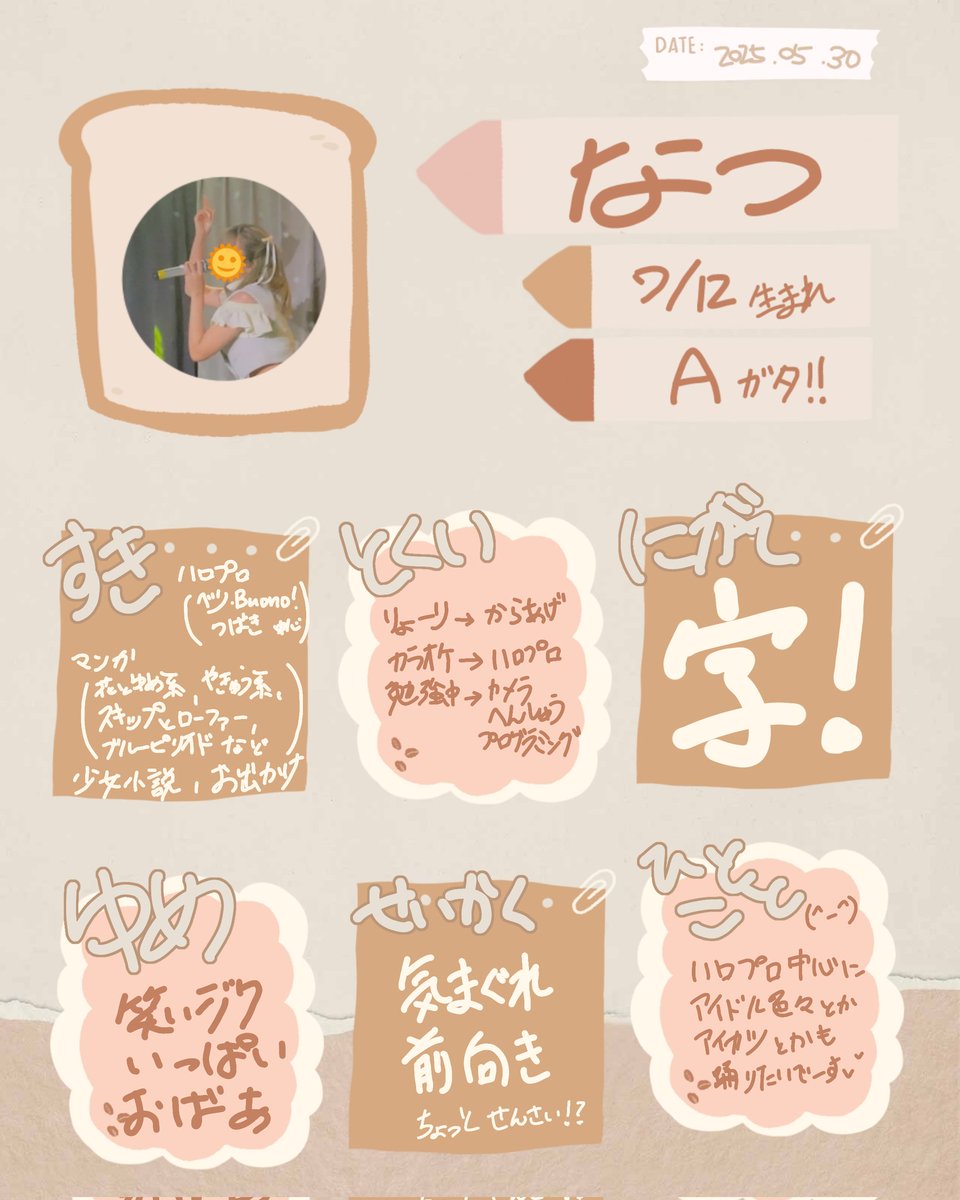 DATE: 2025.05.30
なつ
7/12 生まれ
A ガタ!!
すき
ハロプロ
(ベリ・Buono!
つばき ゆじ)
マンガ
(花とゆめ系、やきゅう系、
スキップとローファー、
ブルーピリオド など)
少女小説、お出かけ
とくい
りょーり→からあげ
カラオケ→ハロプロ
勉強中→カメラ
へんしゅう
プログラミング
にがて
字!
ゆめ
笑いジワ
いっぱい
おばあ
せいかく
気まぐれ
前向き
ちょっと せんさい!?
ひとこと(^-^)
ハロプロ中心に
アイドル色々とか
アイカツとかも
踊りたいでーす♡